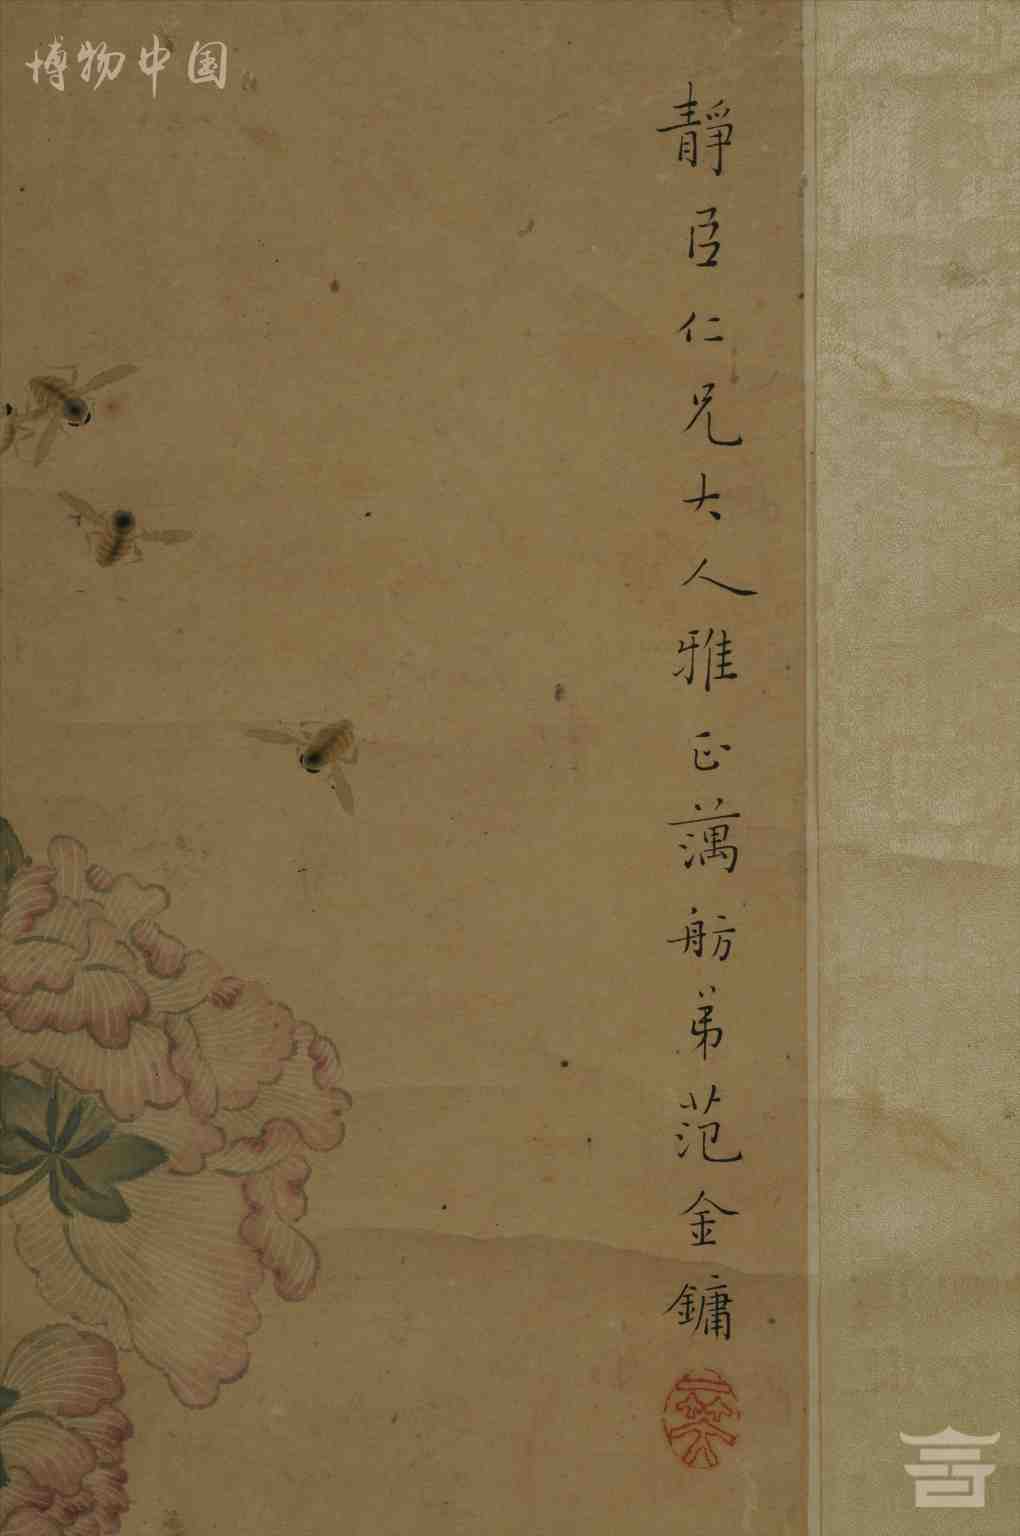 博物中国
靜臣仁兄大人雅正藕舫弟范金鏞